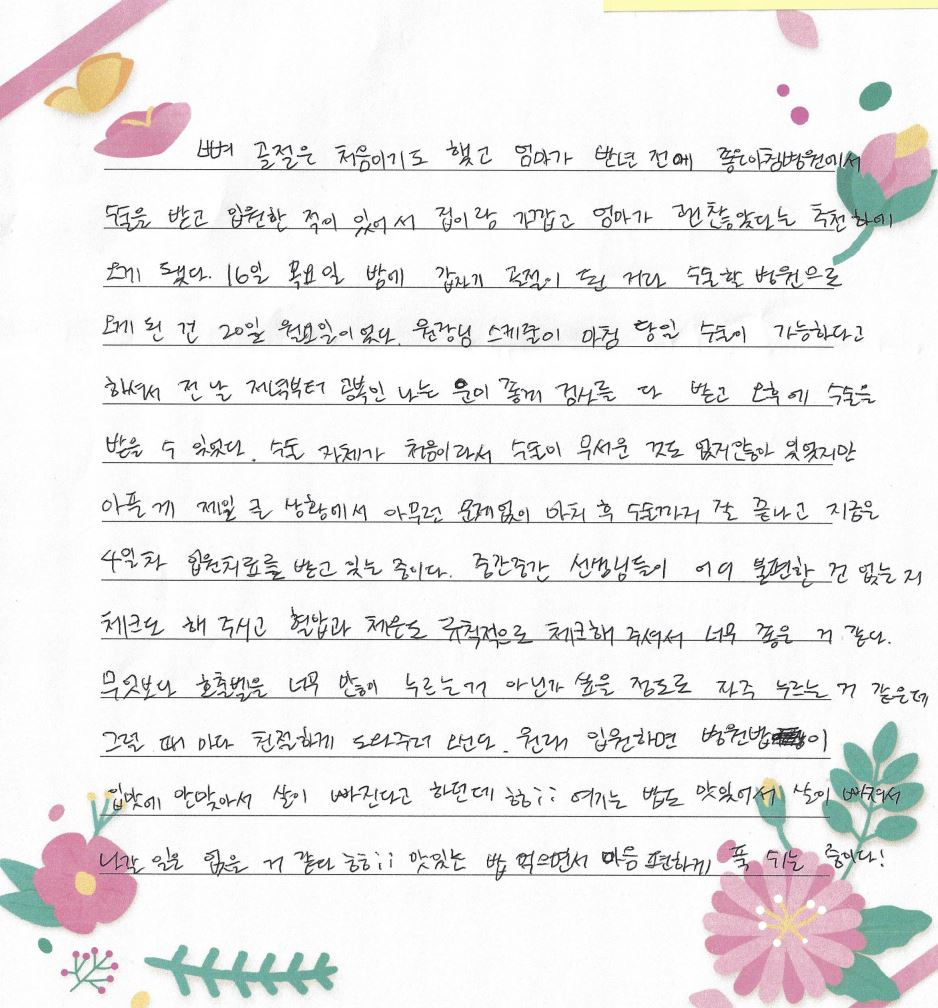 뼈 골절은 처음이기도 했고 엄마가 반년 전에 좋은아침병원에서
수술을 받고 입원한 적이 있어서 집이랑 가깝고 엄마가 괜찮았다는 추천하에
오게 됐다. 16일 목요일 밤에 갑자기 골절이 된 거라 수술할 병원으로
오게 된 건 20일 월요일이었다. 원장님 스케줄이 마침 당일 수술이 가능하다고
하셔서 전날 저녁부터 공복인 나는 운이 좋게 검사를 다 받고 오후에 수술을
받을 수 있었다. 수술 자체가 처음이라서 수술이 무서운 것도 없지않아 있었지만
아픈 게 제일 큰 상황에서 아무런 문제없이 마취 후 수술까지 잘 끝나고 지금은
4일차 입원치료를 받고 있는 중이다. 중간중간 선생님들이 어디 불편한 건 없는지
체크도 해 주시고 혈압과 체온도 규칙적으로 체크해 주셔서 너무 좋은 거 같다.
무엇보다 호출벨을 너무 많이 누르는거 아닌가 싶을 정도로 자주 누르는 거 같은데
그럴 때 마다 친절하게 도와주러 오신다. 원래 입원하면 병원밥이
입맛에 안맞아서 살이 빠진다고 하던데 ㅎㅎ;; 여기는 밥도 맛있어서 살이 빠져서
나갈 일은 없을 거 같다 ㅎㅎ;; 맛있는 밥 먹으면서 마음 편하게 푹 쉬는 중이다!